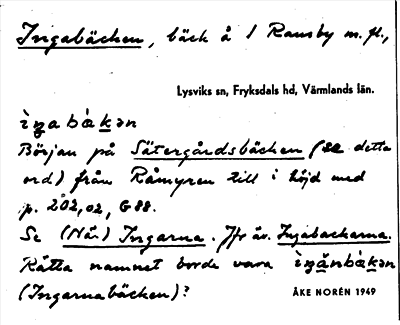 Ingabäcken, bäck å 1 Ransby m.fl.,
Lysviks sn, Fryksdals hd, Värmlands län.
ìŋabὰkən
Början på Sätergårdsbäcken (se detta
ord) från Råmyren till i höjd med
p. 202,02, G88.
Se (När.) Ingarna. Jfr äv. Ingabackarna.
Rätta namnet borde vara ìŋånbὰkən
(Ingarnabäcken)?
ÅKE NORÉN 1949